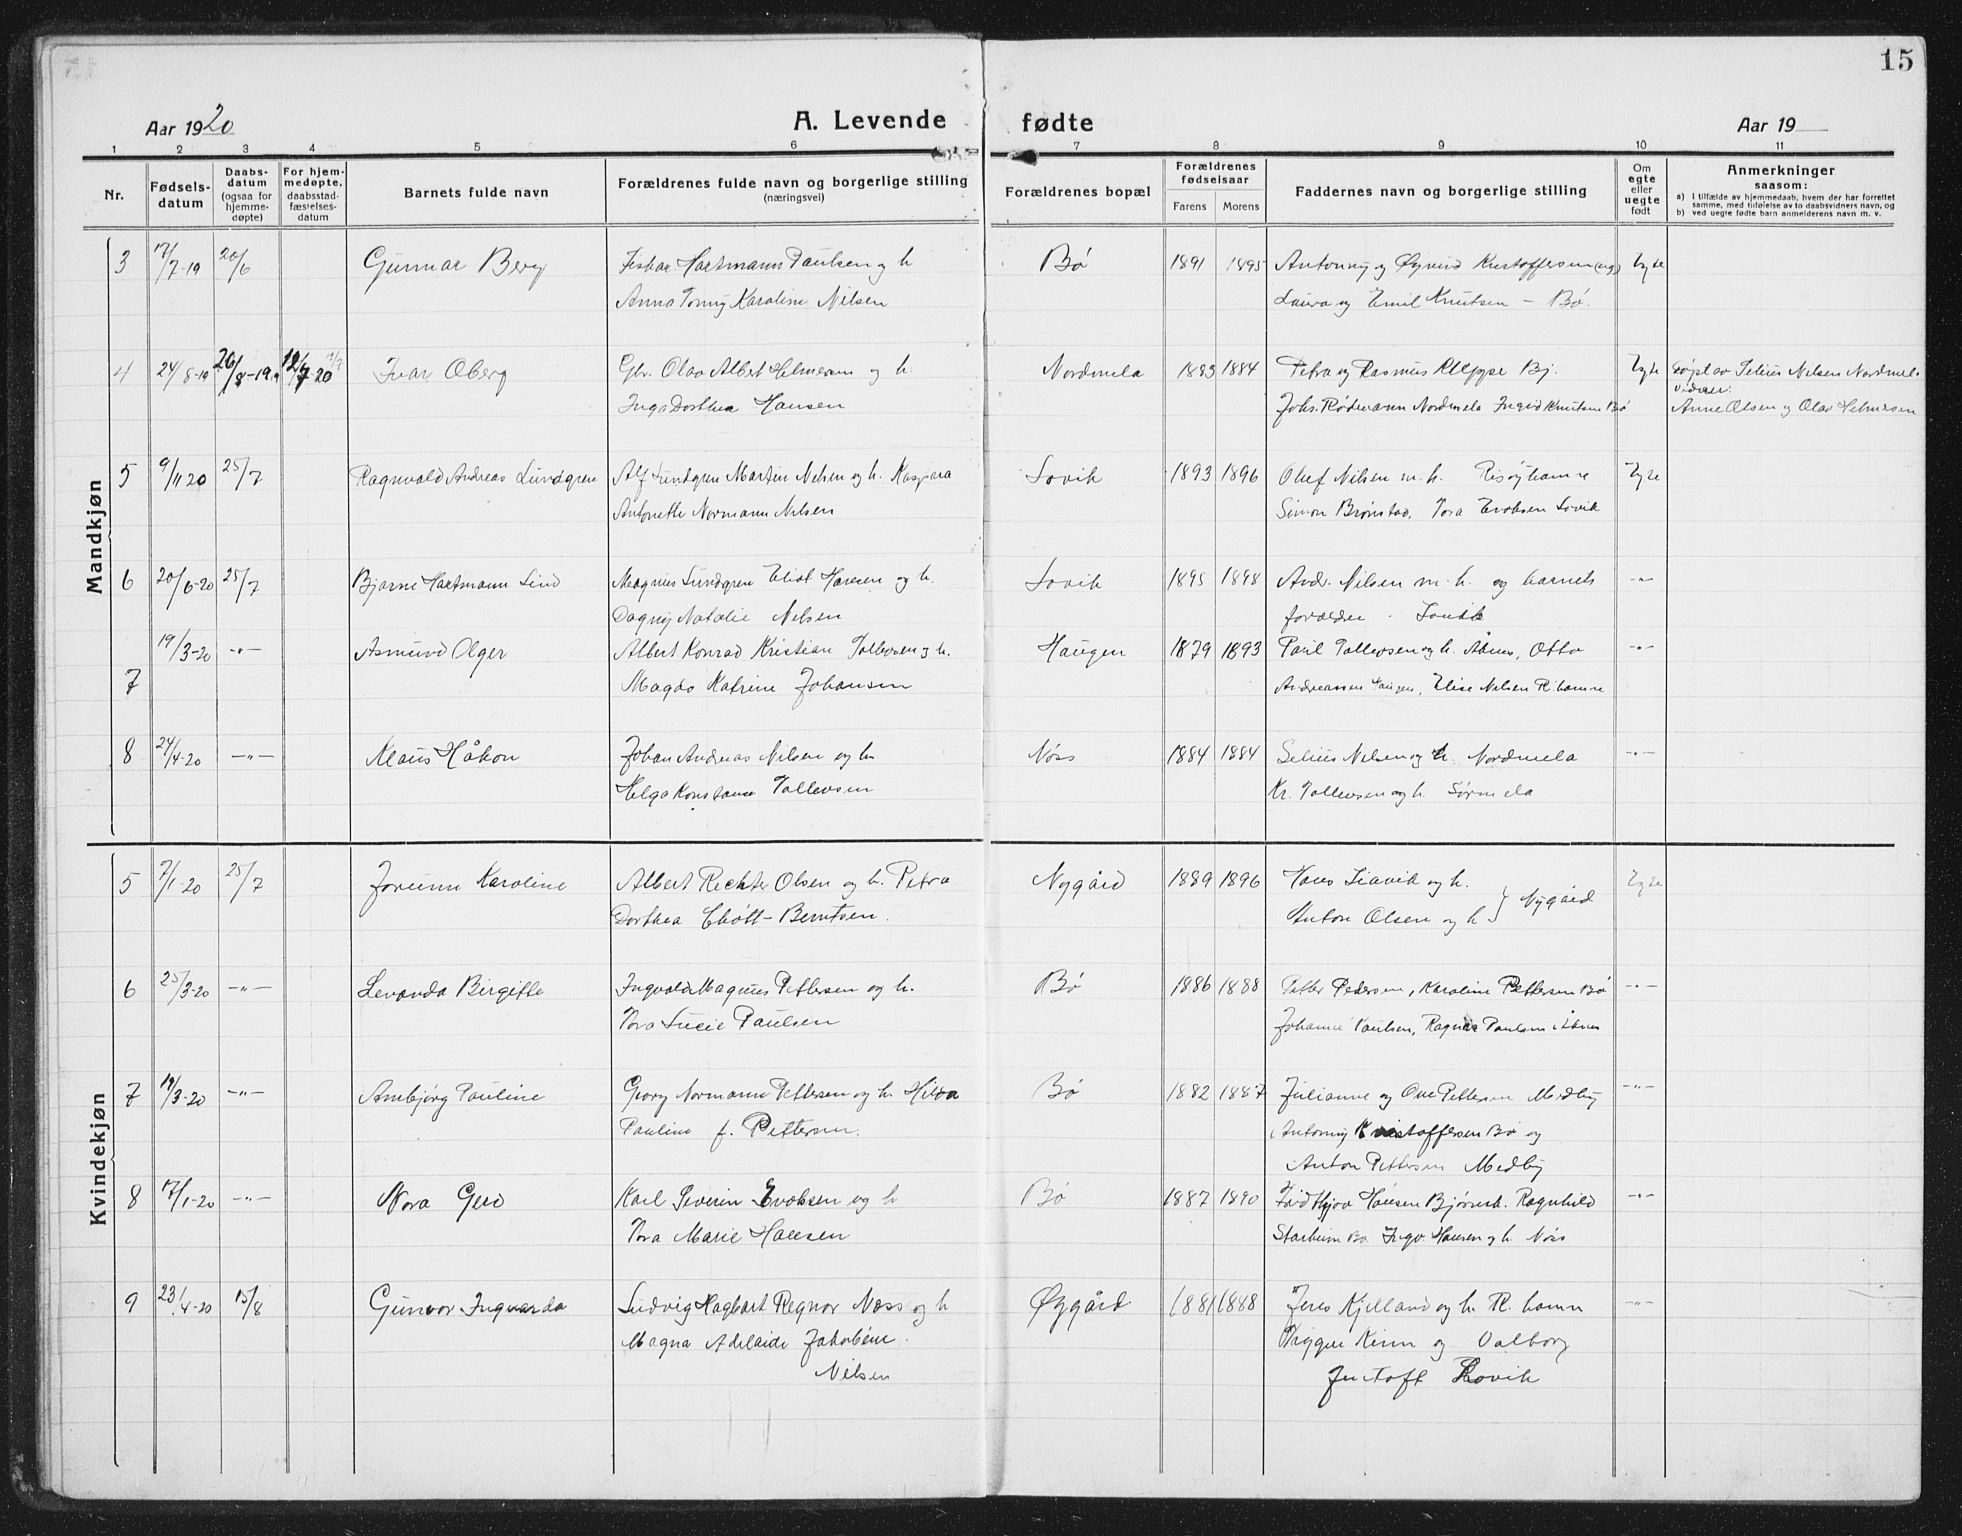 15
Aar 1920 A. Levende fødte Aar 19
1 2 3 4 5 6 7 8 9 10 11
Nr. Fødselsdatum Daabsdatum (ogsaa for hjemmedøpte) For hjemmedøpte, daabsstadfæstelsesdatum Barnets fulde navn Forældrenes fulde navn og borgerlige stilling (næringsvei) Forældrenes bopæl Forældrenes fødselsaar Farens Morens Faddernes navn og borgerlige stilling Om egte eller uegte født Anmerkninger saasom:
a) I tilfælde av hjemmedaab, hvem der har forrettet samme, med tilføielse av to daabsvidners navn, og
b) ved uegte fødte barn anmelderens navn m. v.
Mandkjøn
3 17/7-19 20/6 Gunnar Berg Hartmann Paulsen og h Bø 1891 1895 Antonny og Øyvind Kristoffersen Egte
Anna Tonny Karoline Nilsen Laura og Emil Knutsen – Bø.
4 24/8-19 26/8-19 Ivar Oberg Olav Albert Helmersen og h. Nordmela 1883 1884 Petra og Rasmus Kleppe Bj. Egte Nilsen Nordmel.
Inga Dorthea Hansen Johs. Rødmann Nordmela Ingrid Knutsen Bø Anne Olsen og Olav Helmersen
5 9/11 20 25/7 Ragnvald Andreas Lundgren Alf Lundgren Martin Nilsen og h. Kaspara Lovik 1893 1896 Oluf Nilsen m. h. Risøyhamn Egte
Antonette Normann Nilsen Simon Brønstad, Tora Lovik
6 20/6-20 25/7 Bjarne Hartmann Lind Magnus Lundgren Eliot Hansen og h. Lovik 1895 1898 Andr. Nilsen m. h. og barnets -"-
Dagny Natalie Nilsen forældre Lovik
7 19/3-20 -"- Asmund Olger Albert Konrad Kristian Tollevsen og h. Haugen 1879 1893 Paul Tollevsen og h. Åknes, Otto -"-
Magda Katrine Johansen Andreassen Haugen, Elise Nilsen R.hamn
8 24/4-20 -"- Klaus Håkon Johan Andreas Nilsen og h Nøss 1884 1884 Selius Nilsen og h. Nordmela -"-
Helga Konstanse Tollevsen Kr. Tollevsen og h. Sørmela
Kvindekjøn
5 7/1-20 25/7 Jorunn Karoline Albert Richter Olsen og h. Petra Nygård 1889 1896 Hans og h. Egte
Dorthea Berntsen. Anton Olsen og h } Nygård
6 25/3-20 -"- Levanda Birgitte Ingvald Magnus Pettersen og h. Bø 1886 1888 Petter Pedersen, Karoline Pettersen Bø -"-
Tora Lucie Paulsen Paulsen, Ragna Paulsen
7 19/3-20 -"- Arnbjørg Pauline Georg Normann Pettersen og h. Hilda Bø 1882 1887 Julianne og Ove Pettersen Medby -"-
Pauline f. Pettersen. Antonny Kristoffersen Bø og
Anton Pettersen Medby
8 17/1-20 -"- Nora Gerd Karl Severin og h Bø 1887 1890 Fridthjov Hansen Ragnhild -"-
Tora Marie Hansen Starheim Bø. Ingv. Hansen og h. Nøss
9 23/4-20 15/8 Gunvor Ingvarda Ludvig Hagbart Regnor Næss og h Øygård 1881 1888 Jens Kjelland og h. R.hamn -"-
Magna Adelaide Jakobine Trygve Kinn og Valborg
Nilsen Lovik